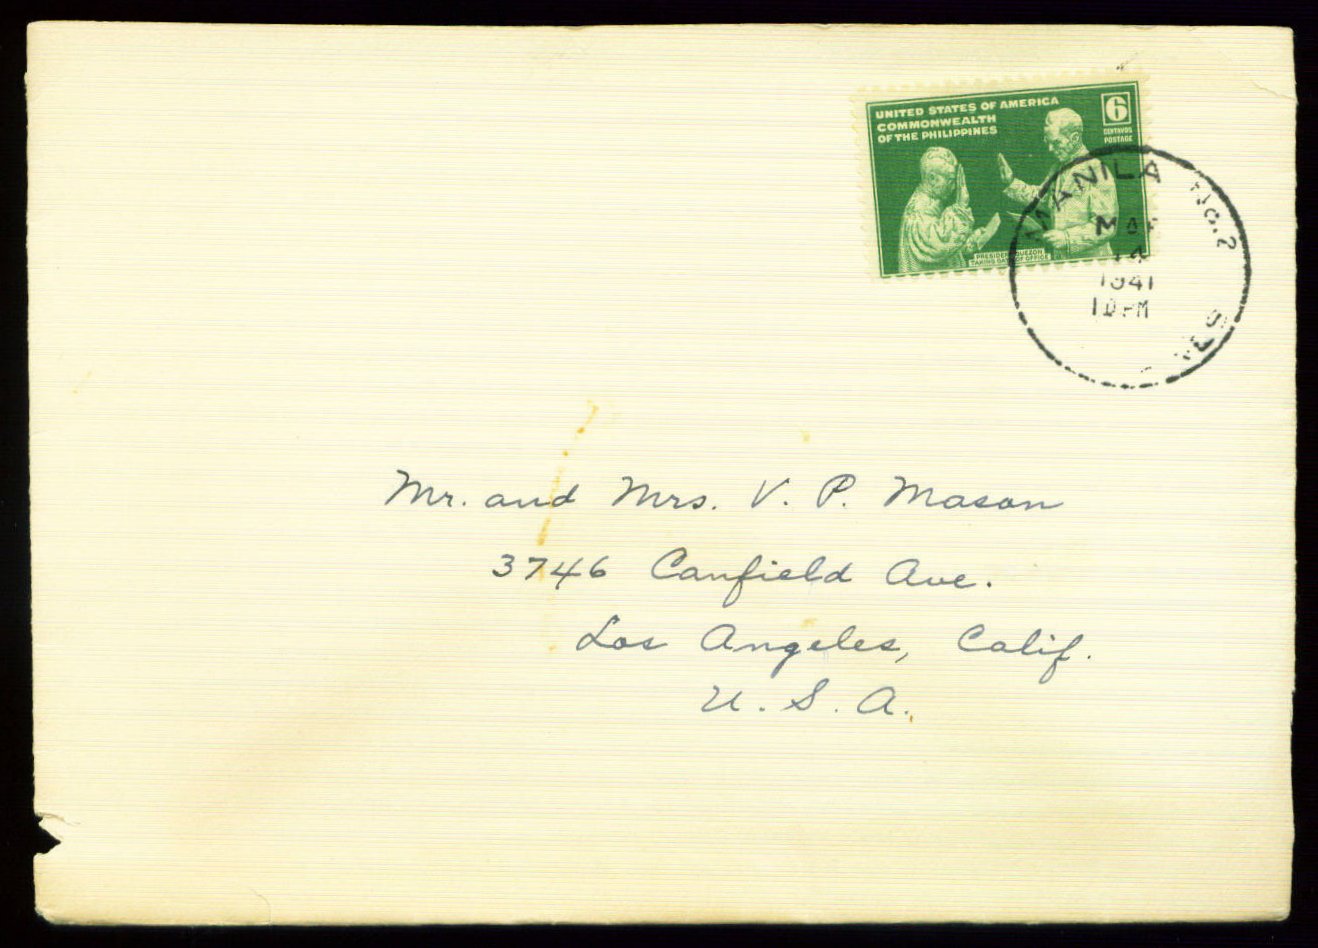 UNITED STATES OF AMERICA
COMMONWEALTH
OF THE PHILIPPINES
6
CENTAVOS
POSTAGE
PRESIDENT QUEZON
TAKING OATH OF OFFICE
MANILA NO. 2
1941
Mr. and Mrs. V. P. Mason
3746 Canfield Ave.
Los Angeles, Calif.
U. S. A.